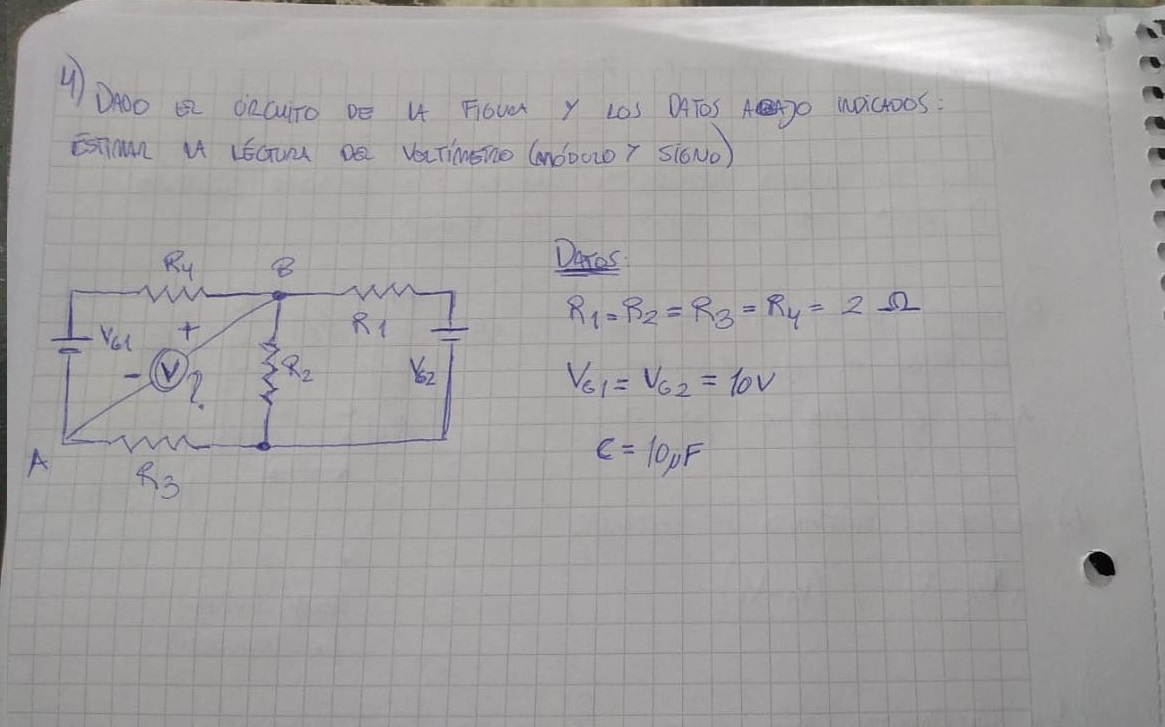 4) DADO EL CIRCUITO DE LA FIGURA Y LOS DATOS ABAJO INDICADOS:
ESTIMAR LA LÉCTURA DEL VOLTÍMETRO (MÓDULO Y SIGNO)
R4 B
DATOS:
R1 = R2 = R3 = R4 = 2 Ω
VG1 + R1
- V ? R2 VG2
VG1 = VG2 = 10V
A R3
C = 10µF